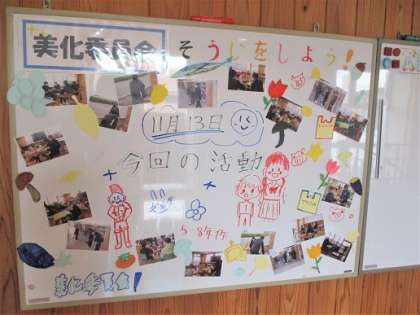 美化委員会 そうじをしよう!
11月13日
今回の活動
5~8年作
美化委員会!